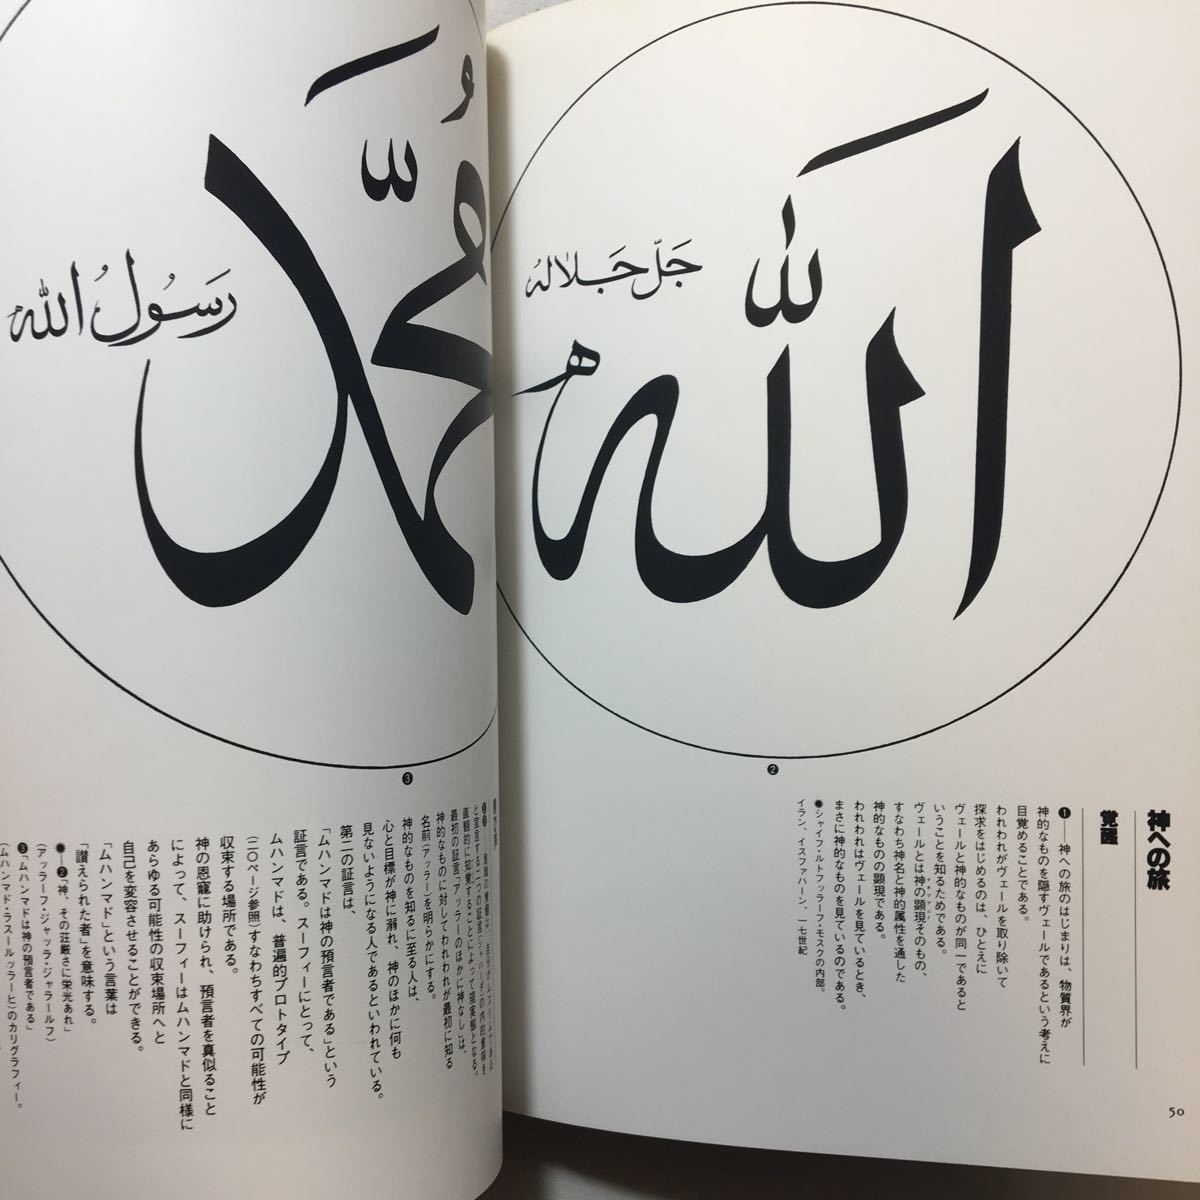 الله
جَلّ جَلَالُه
❷
神への旅
覚醒
❶――神への旅のはじまりは、物質界が
神的なものを隠すヴェールであるという考えに
目覚めることである。
われわれがヴェールを取り除いて
探求をはじめるのは、ひとえに
ヴェールと神的なものが同一であると
いうことを知るためである。
ヴェールとは神の顕現そのもの、
すなわち神名と神的属性を通した
神的なものの顕現である。
われわれはヴェールを見ているとき、
まさに神的なものを見ているのである。
✹シャイフ・ルトフッラーフ・モスクの内部。
イラン、イスファハーン、一七世紀
50
مُحَمَّد
رَسُولُ الله
❸
と宣言する二つの証言(シャハーダ)の内的意味を
直観的に知覚することによって現実態となる。
最初の証言「アッラーのほかに神なし」は、
神的なものに対してわれわれが最初に知る
名前(アッラー)を明らかにする。
神的なものを知るに至る人は、
心と目標が神に溺れ、神のほかに何も
見ないようになる人であるといわれている。
第二の証言は、
「ムハンマドは神の預言者である」という
証言である。スーフィーにとって、
ムハンマドは、普遍的プロトタイプ
(二〇ページ参照)すなわちすべての可能性が
収束する場所である。
神の恩寵に助けられ、預言者を真似ること
によって、スーフィーはムハンマドと同様に
あらゆる可能性の収束場所へと
自己を変容させることができる。
「ムハンマド」という言葉は
「讃えられた者」を意味する。
✹―❷「神、その荘厳さに栄光あれ」
(アッラーフ・ジャッラ・ジャラールフ)
❸「ムハンマドは神の預言者である」
(ムハンマド・ラスールッラーヒ)のカリグラフィー。